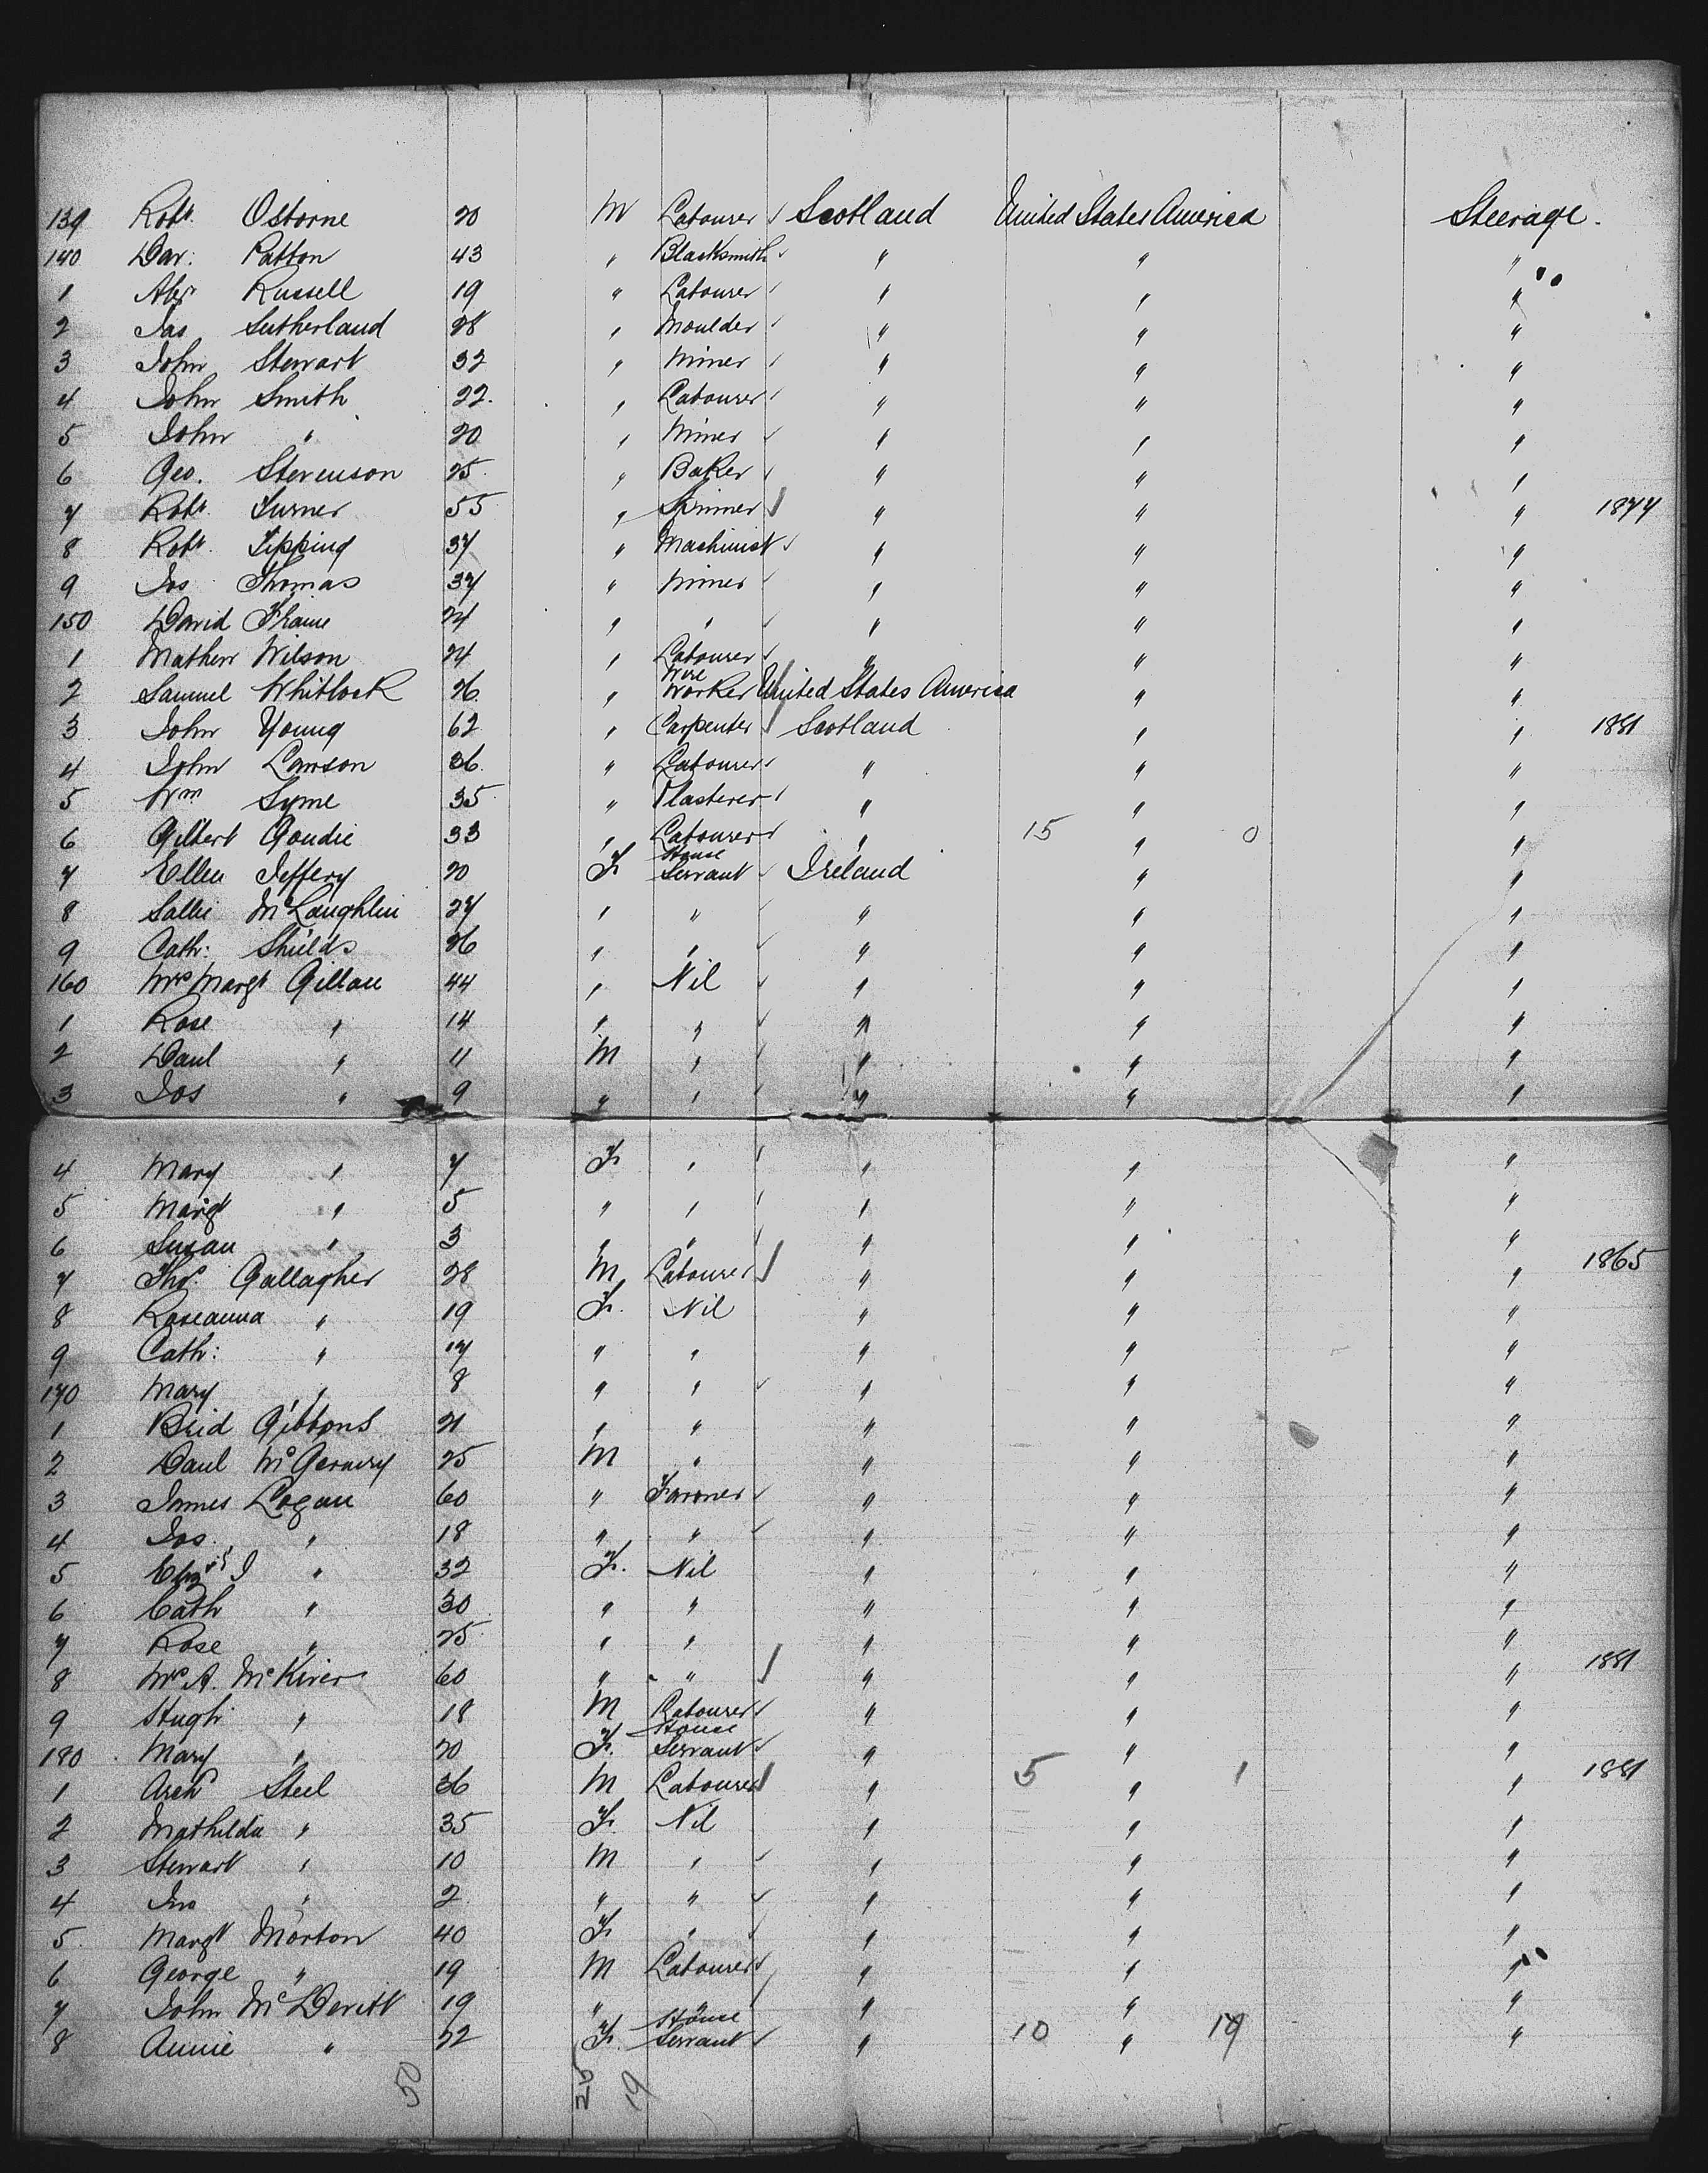 139 Robt. Osborne 20 M Labourer Scotland United States America Steerage.
140 Dav: Patton 43 " Blacksmith " " "
1 Alexr Russell 19 " Labourer " " "
2 Jas Sutherland 28 " Moulder " " "
3 John Stewart 32 " Miner " " "
4 John Smith 22. " Labourer " " "
5 John " 20 " Miner " " "
6 Geo. Stevenson 25. " Baker " " "
7 Robt. Turner 55 " " " " 1877
8 Robt. Tipping 37 " Machinist " " "
9 Jos Thomas 37 " Miner " " "
150 David 24 " " " " "
1 Mathew Wilson 24 " Labourer " " "
2 Samuel Whitlock 26. " Wire Worker United States America " "
3 John Young 62 " Carpenter Scotland " " 1881
4 John Lawson 36. " Labourer " " "
5 Wm Syme 35 " Plasterer " " "
6 Gilbert Goudie 33 " Labourer " 15 " 0 "
7 Ellen Jeffery 20 F. House Servant Ireland " "
8 Sallie McLaughlin 27 " " " " "
9 Cath: Shields 26 " " " " "
160 Mrs Margt Gillan 44 " Nil " " "
1 Rose " 14 " " " " "
2 Danl " 11 M " " " "
3 Jos " 9 " " " " "
4 Mary " 7 F. " " " "
5 Margt " 5 " " " " "
6 Susan " 3 " " " " "
7 Thos. Gallagher 28 M Labourer " " " 1865
8 Roseanna " 19 F. Nil " " "
9 Cath: " 17 " " " " "
170 Mary " 8 " " " " "
1 Brid Gibbons 21 " " " " "
2 Danl 25 M " " " "
3 James Logan 60 " Farmer " " "
4 Jos. " 18 " " " " "
5 J " 32 F. Nil " " "
6 Cath " 30 " " " " "
7 Rose " 25 " " " " "
8 Mrs A. McKiver 60 " " " " " 1881
9 Hugh " 18 M Labourer " " "
180 Mary " 20 F. House Servant " " "
1 Archd Steel 36 M Labourer " 5 " 1 " 1881
2 Mathilda " 35 F. Nil " " "
3 Stewart " 10 M " " " "
4 Jno " 2 " " " " "
5. Margt Morton 40 F. " " " "
6 George " 19 M Labourer " " "
7 John McDevitt 19 " " " " "
8 Annie " 22 F. House Servant " 10 " 19 "
50 19